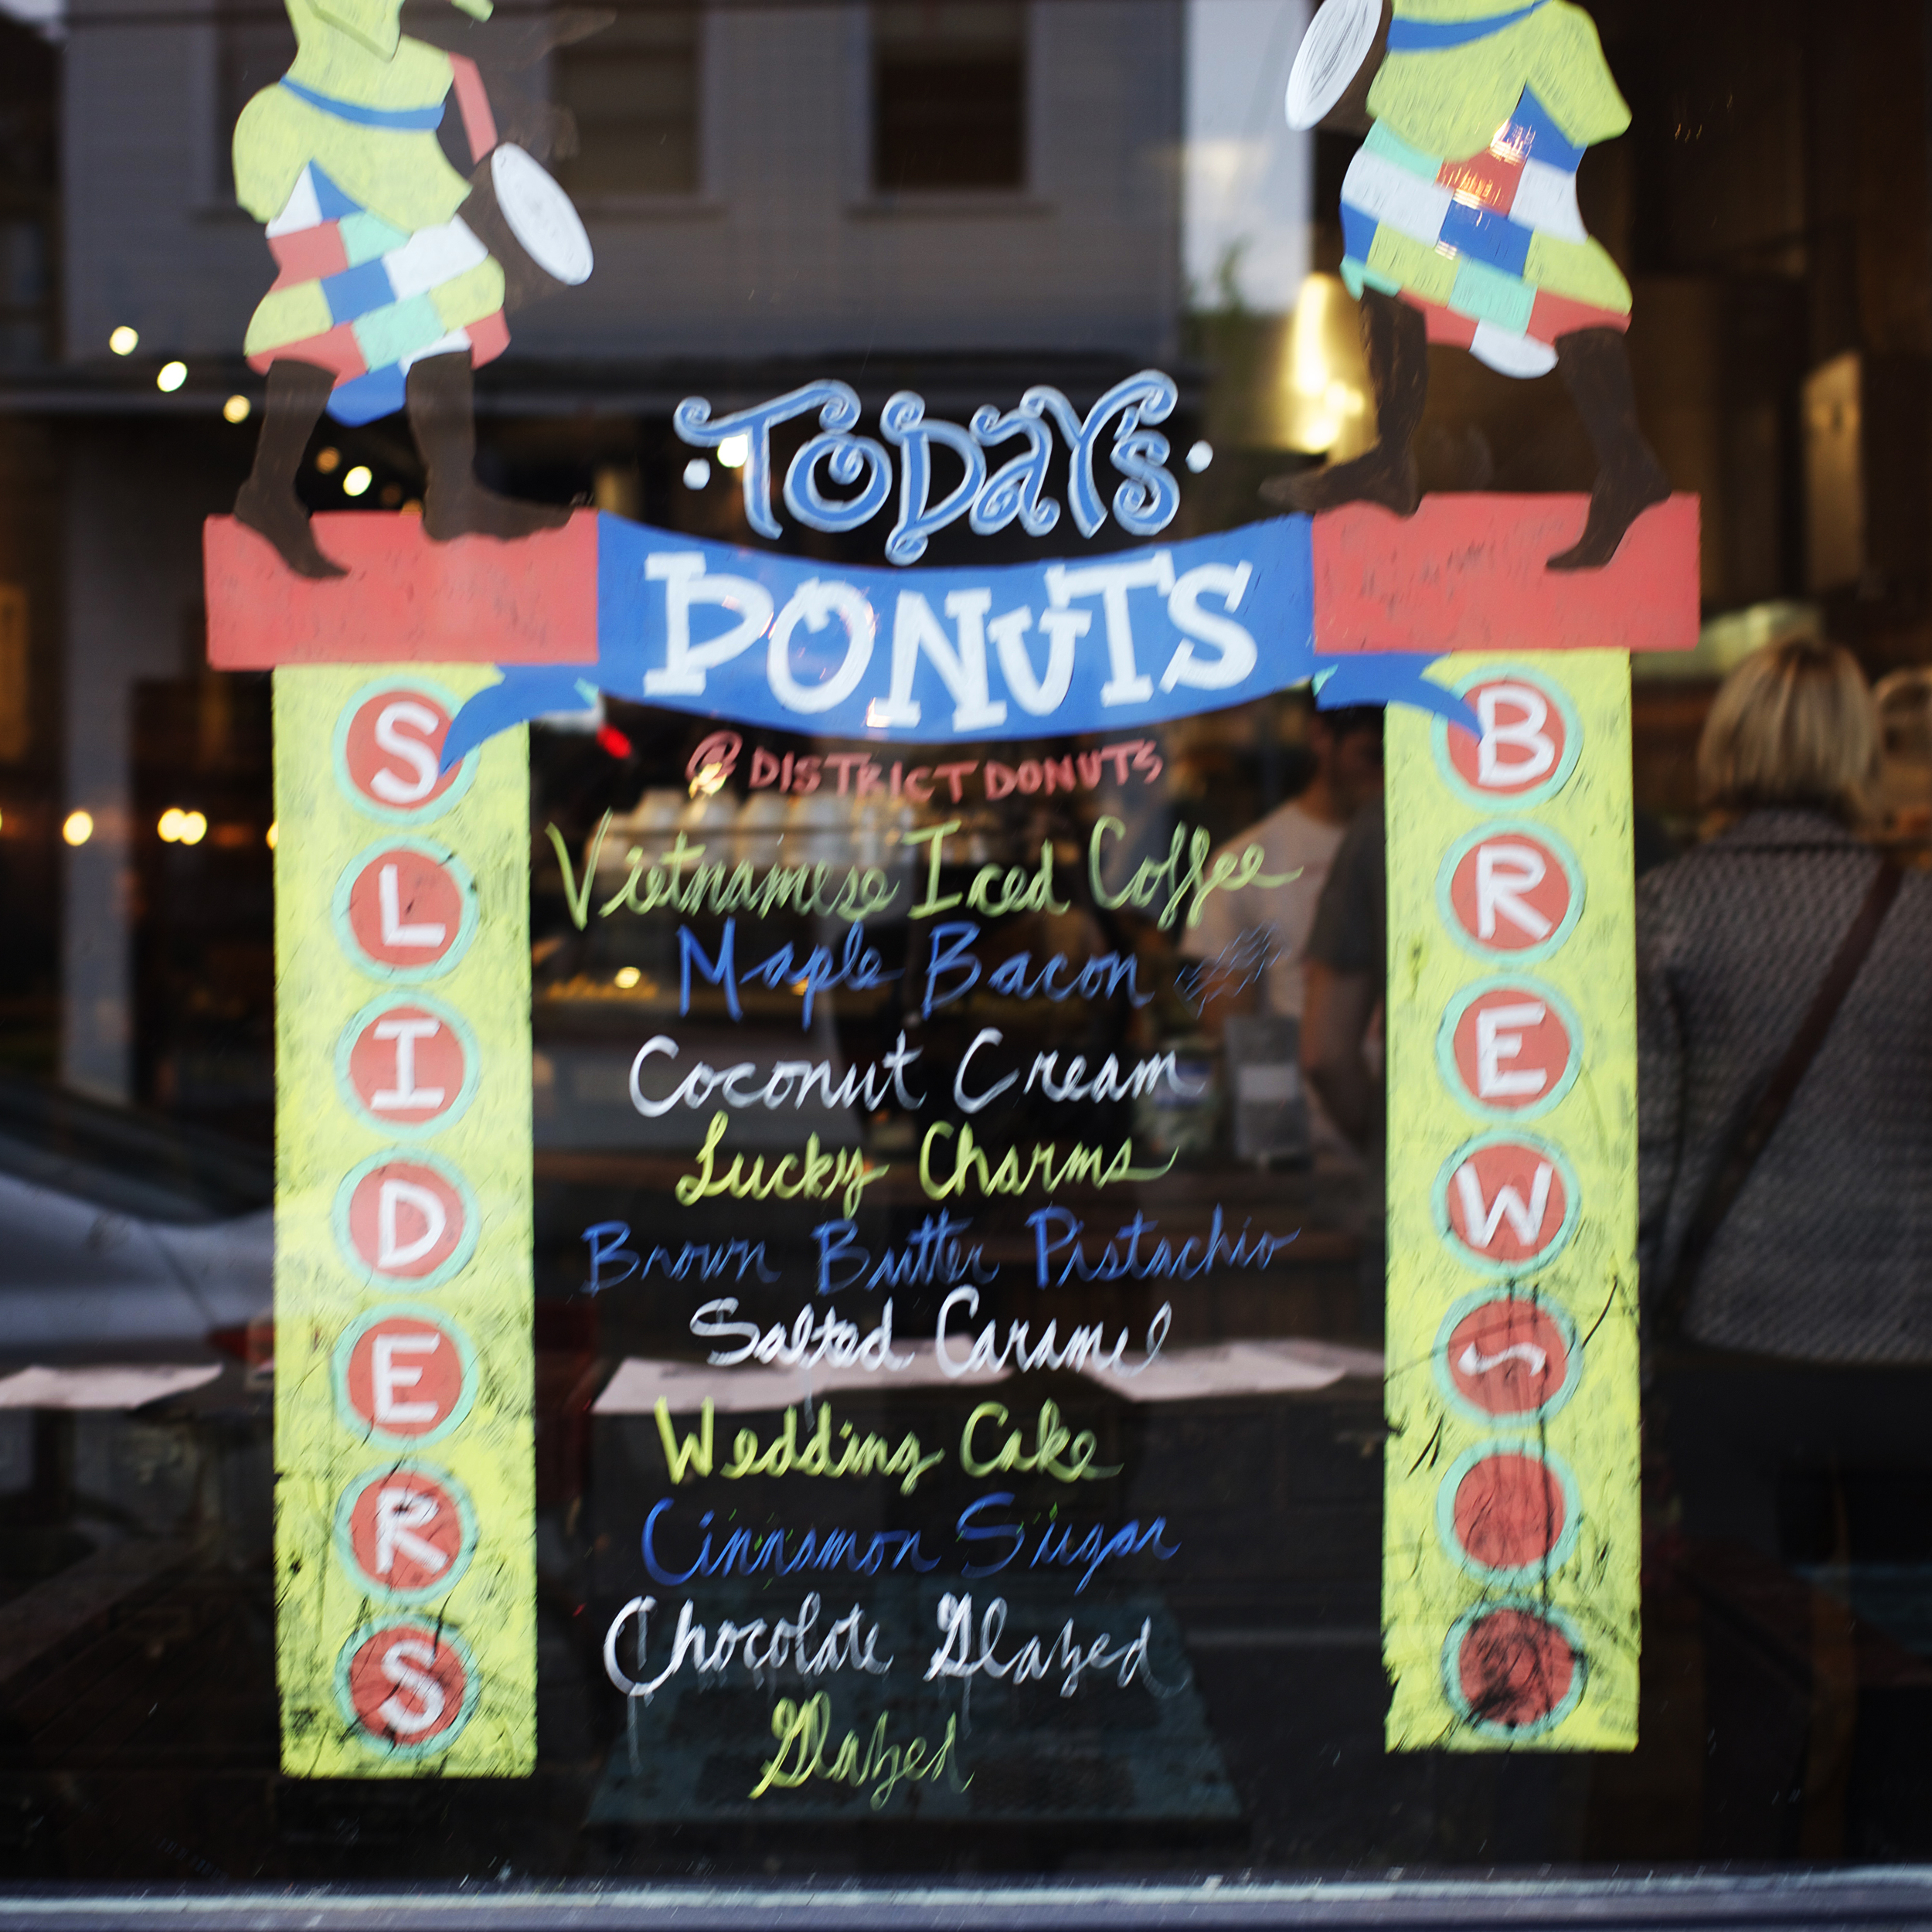 TODAY'S
DONUTS
@DISTRICTDONUTS
Vietnamese Iced Coffee
Maple Bacon
Coconut Cream
Lucky Charms
Brown Butter Pistachio
Salted Caramel
Wedding Cake
Cinnamon Sugar
Chocolate Glazed
Glazed
SLIDERS
BREW~